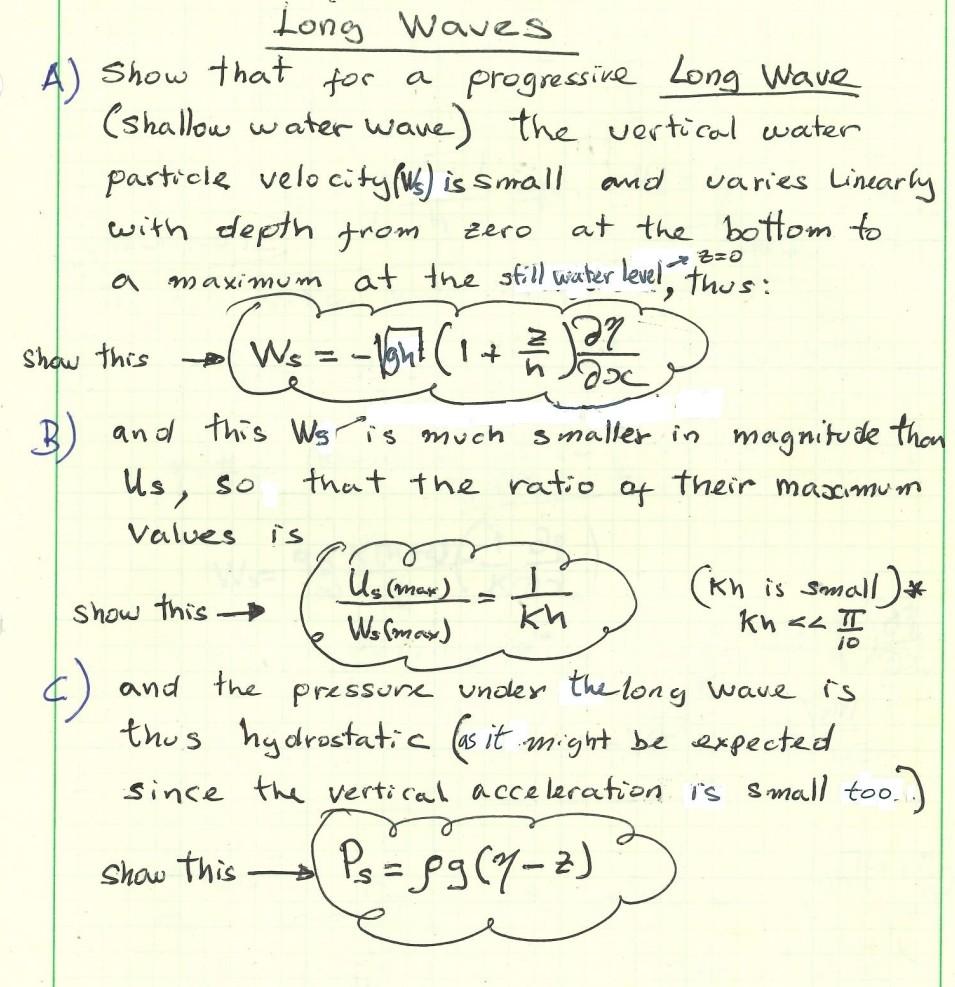 Long Waves
A) Show that for a progressive Long Wave
(shallow water wave) the vertical water
particle velocity (Ws) is small and varies Linearly
with depth from zero at the bottom to
a maximum at the still water level → z=0, thus:
show this → Ws = -√gh (1 + z/h) ∂η/∂x
B) and this Ws is much smaller in magnitude than
Us, so that the ratio of their maximum
values is
show this → Us(max)/Ws(max) = 1/kh (kh is small)* kh << π/10
C) and the pressure under the long wave is
thus hydrostatic (as it might be expected
since the vertical acceleration is small too.)
show this → Ps = ρg(η-z)